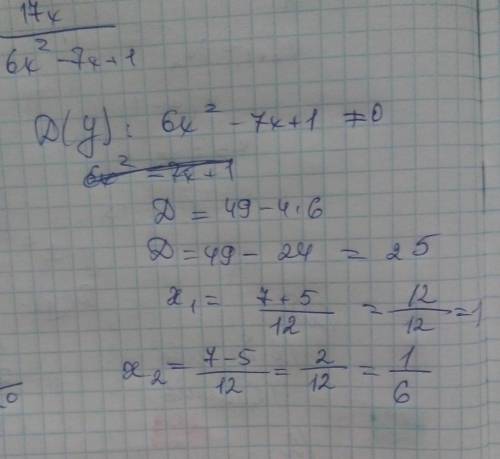 17x
6x² - 7x + 1
D(y): 6x² - 7x + 1 ≠ 0
6x² - 7x + 1
D = 49 - 4·6
D = 49 - 24 = 25
x₁ = (7+5)/12 = 12/12 = 1
x₂ = (7-5)/12 = 2/12 = 1/6